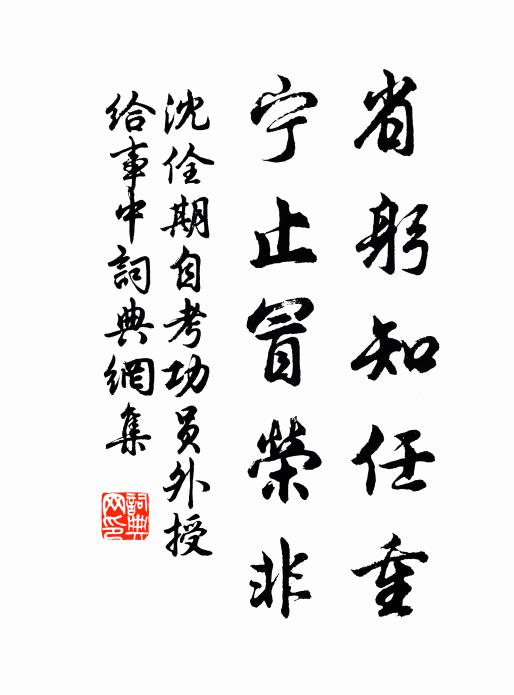 省躬知任重
宁止冒榮非
沈佺期自考功员外授
给事中詞典網集
詞典网印